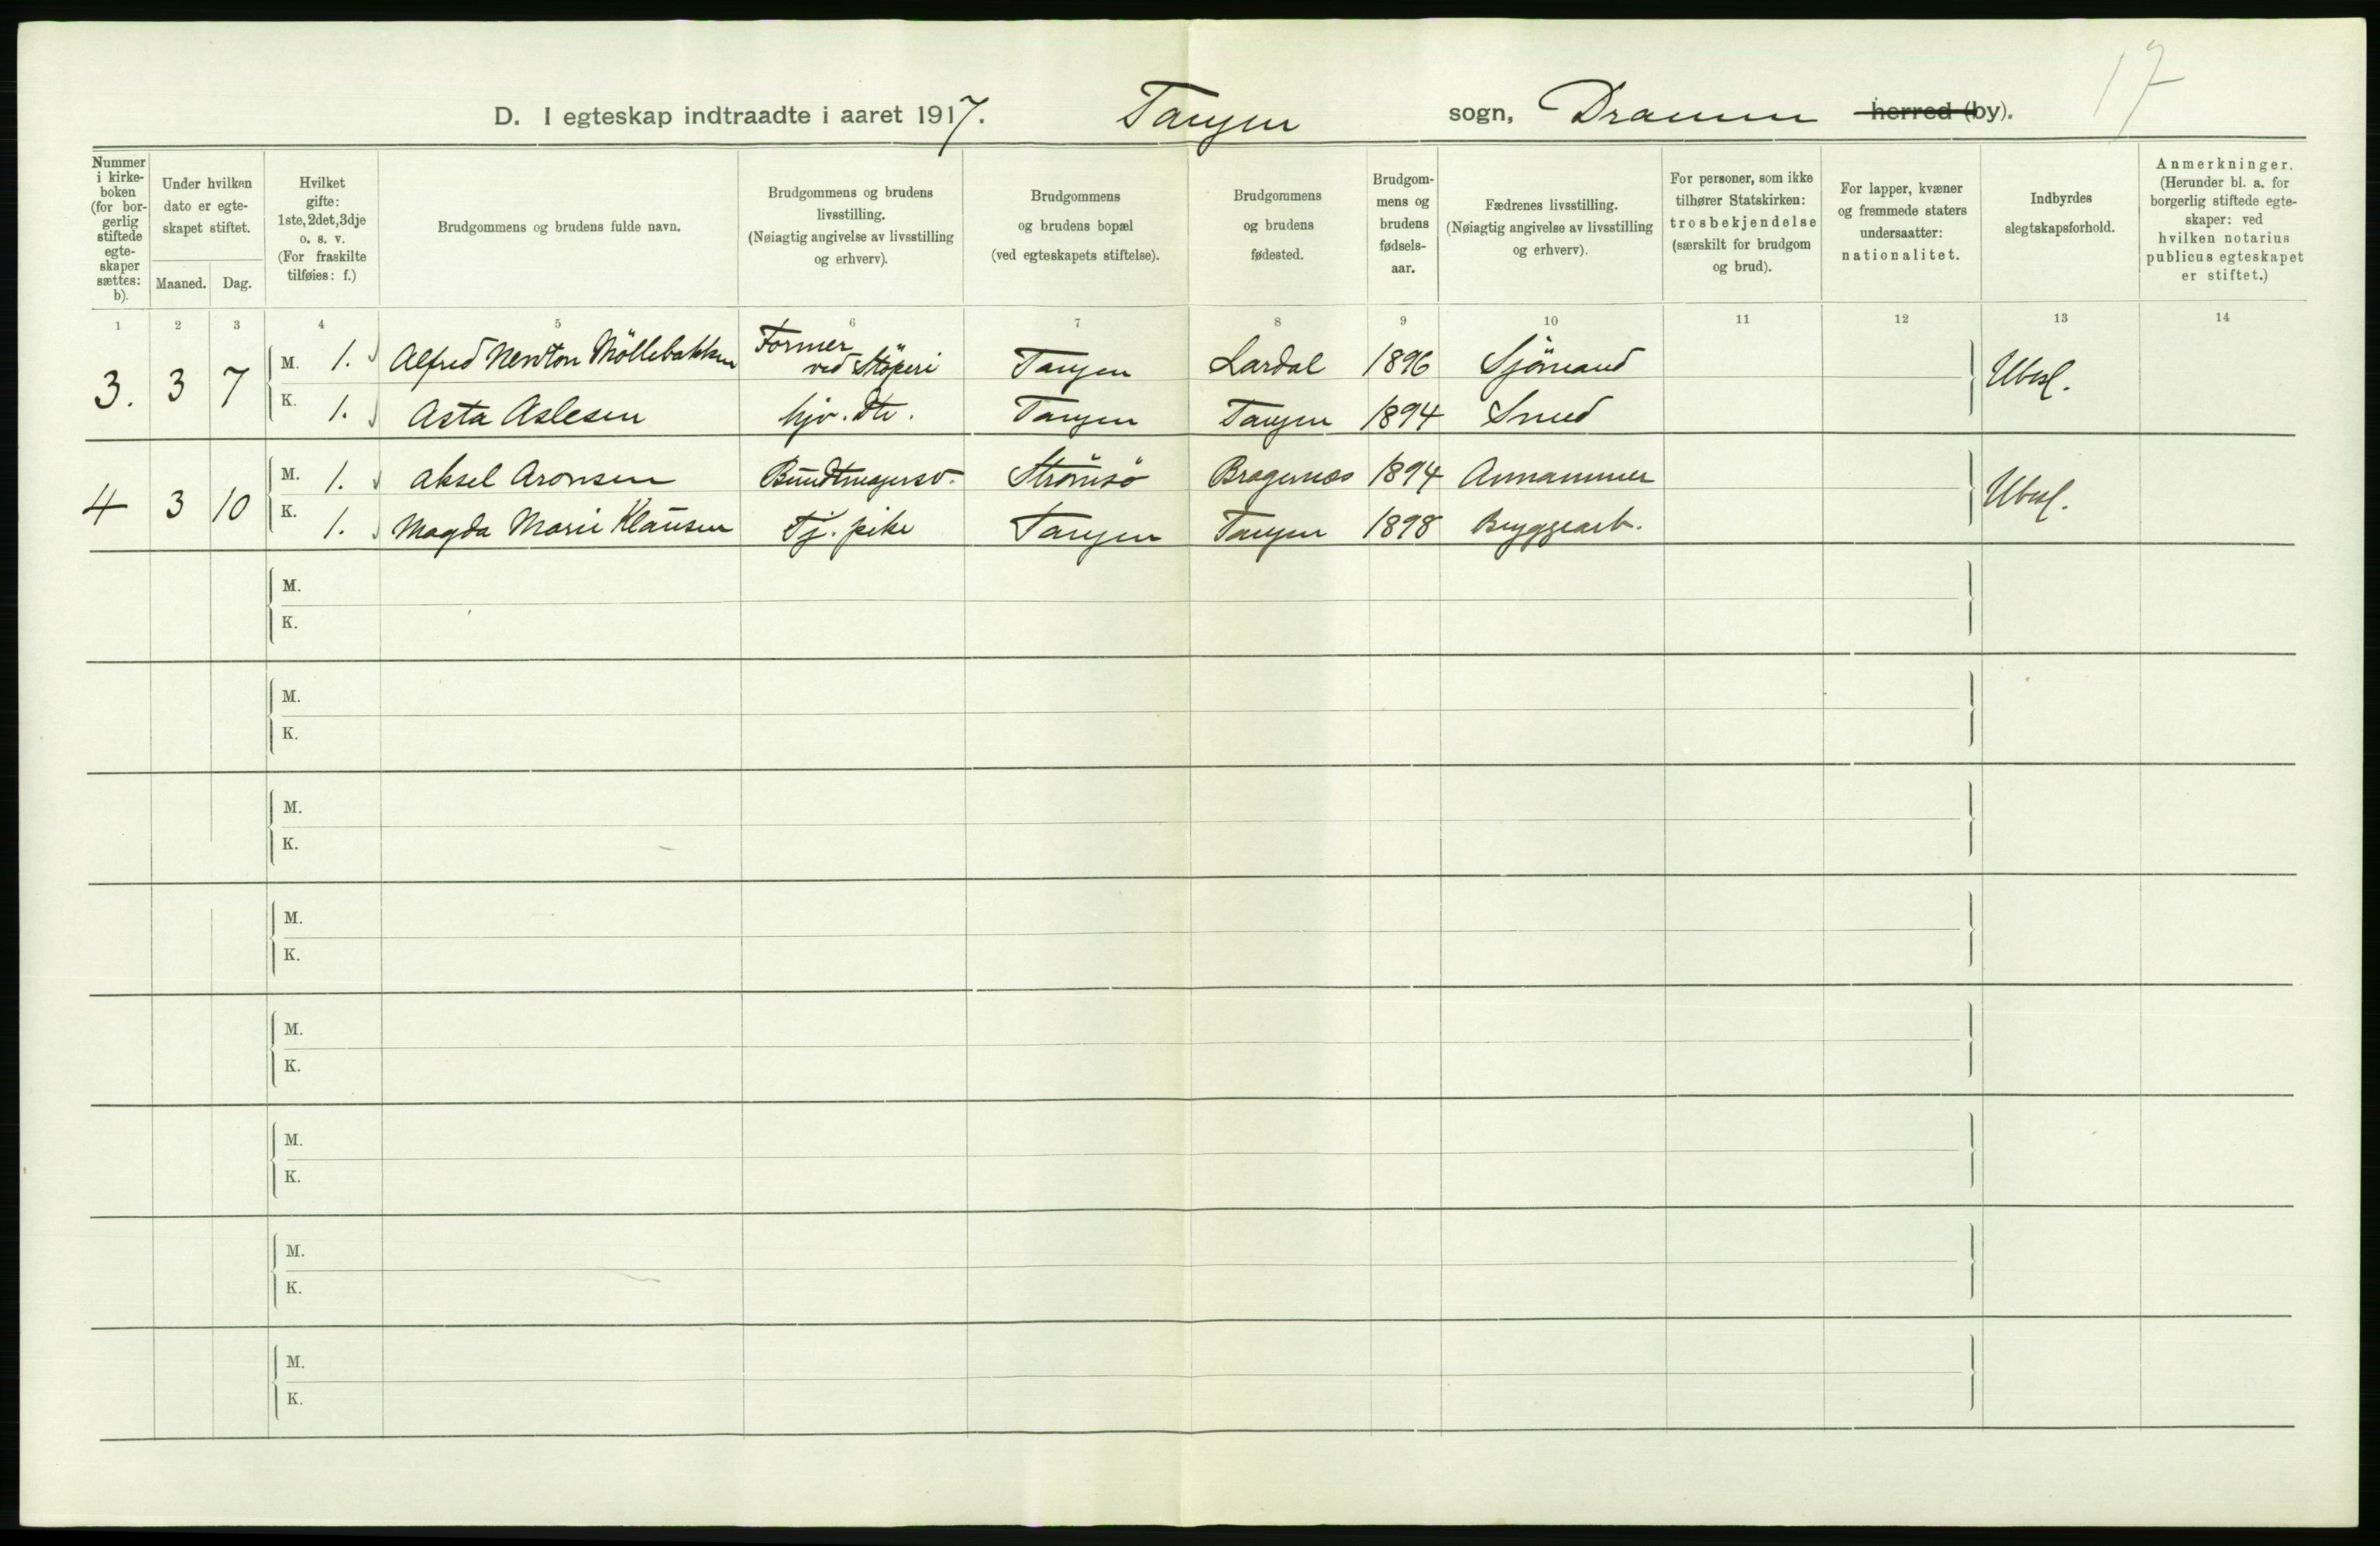 17
D. I egteskap indtraadte i aaret 1917. Tangen sogn, Drammen herred (by).
Nummer i kirke- boken (for bor- gerlig stiftede egte- skaper sættes: b).
Under hvilken dato er egte- skapet stiftet.
Maaned. Dag.
Hvilket gifte: 1ste, 2det, 3dje o. s. v. (For fraskilte tilføies: f.)
Brudgommens og brudens fulde navn.
Brudgommens og brudens livsstilling. (Nøiagtig angivelse av livsstilling og erhverv).
Brudgommens og brudens bopæl (ved egteskapets stiftelse).
Brudgommens og brudens fødested.
Brudgom- mens og brudens fødsels- aar.
Fædrenes livsstilling. (Nøiagtig angivelse av livsstilling og erhverv).
For personer, som ikke tilhører Statskirken: trosbekjendelse (særskilt for brudgom og brud).
For lapper, kvæner og fremmede staters undersaatter: nationalitet.
Indbyrdes slegtskapsforhold.
Anmerkninger. (Herunder bl. a. for borgerlig stiftede egte- skaper: ved hvilken notarius publicus egteskapet er stiftet.)
1 2 3 4 5 6 7 8 9 10 11 12 13 14
3. 3 7 M. 1. Alfred Newton Möllebakken Former ved Støperi Tangen Lardal 1896 Sjömand Ubesl.
K. 1. Asta Aslesen hjv. dtr. Tangen Tangen 1894 Smed
4 3 10 M. 1. Aksel Aronsen Buntmagersv. Strømsö Bragernæs 1894 Ubesl.
K. 1. Magda Marie Klausen Tj. pike Tangen Tangen 1898 Bryggearb.
M.
K.
M.
K.
M.
K.
M.
K.
M.
K.
M.
K.
M.
K.
M.
K.